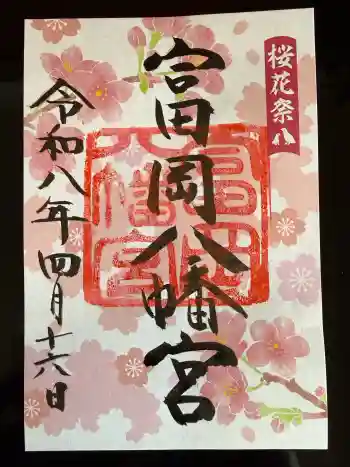 桜花祭
富岡八幡宮
令和八年四月十六日
富岡八幡宮